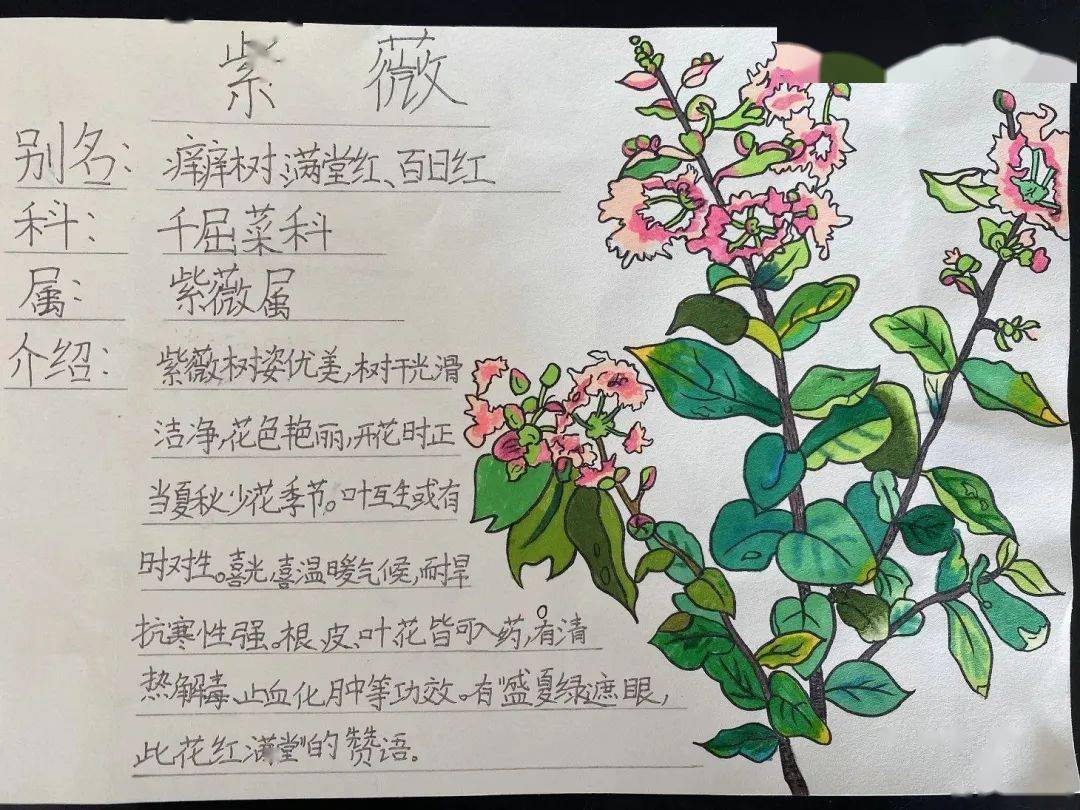 紫 薇
别名: 痒痒树、满堂红、百日红
科: 千屈菜科
属: 紫薇属
介绍: 紫薇树姿优美,树干光滑
洁净,花色艳丽,开花时正
当夏秋少花季节。叶互生或有
时对生。喜光,喜温暖气候,耐旱
抗寒性强。根、皮、叶、花皆可入药,有清
热解毒、止血化肿等功效。有"盛夏绿遮眼,
此花红满堂"的赞语。